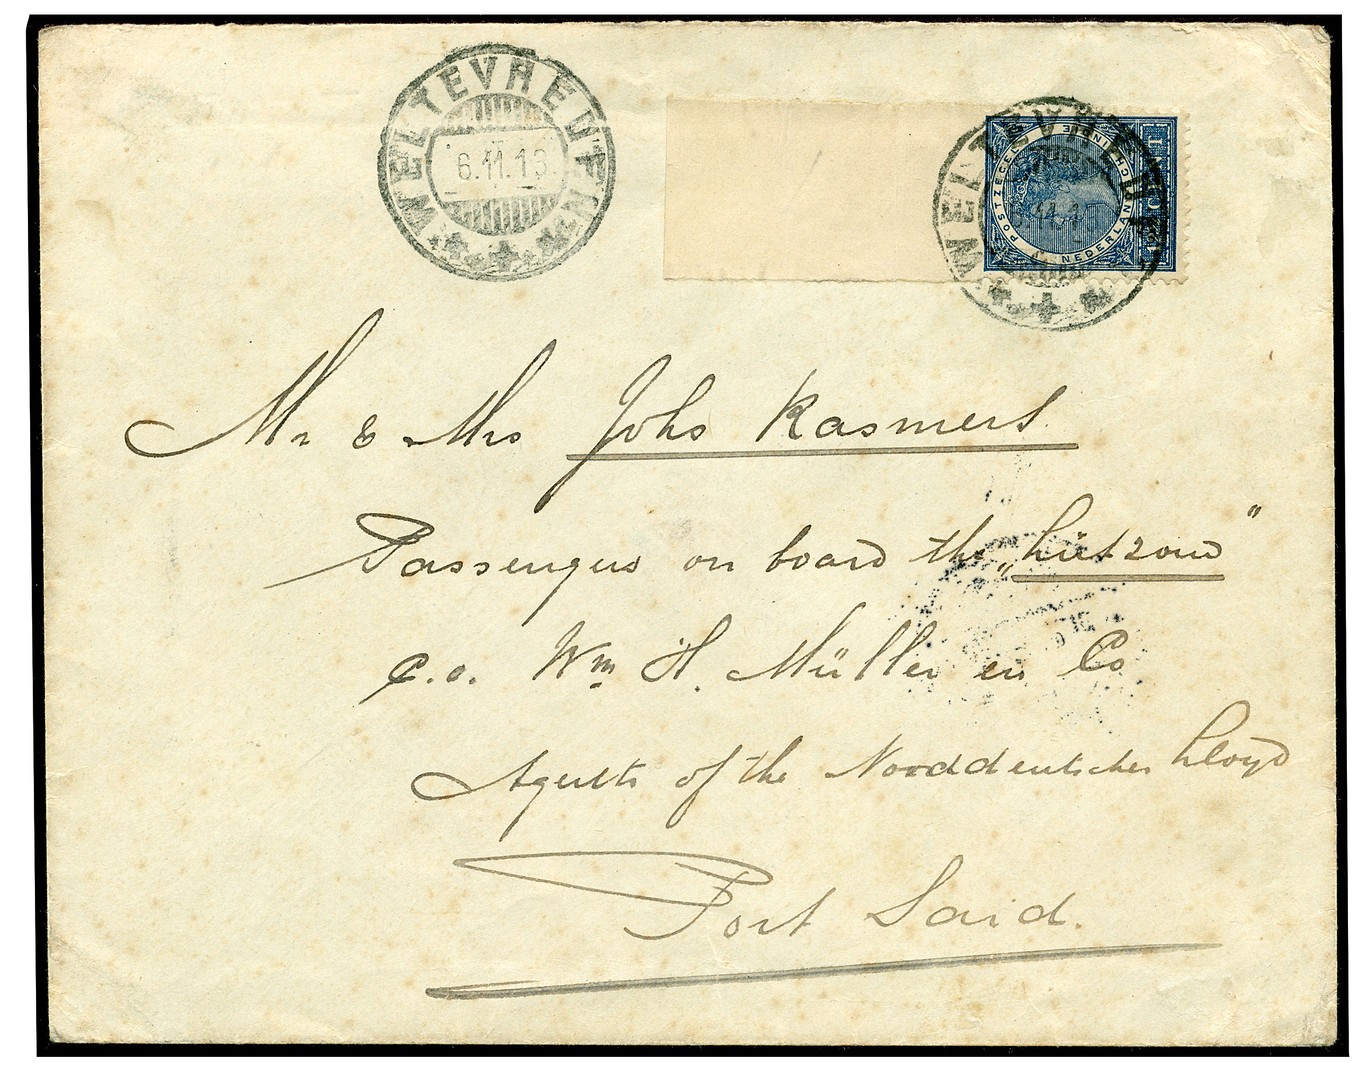 WELTEVREDEN
6.11.13.
WELTEVREDEN
POSTZEGEL NEDERLANDSCH INDIE
Mr & Mrs Johs Kasmers
Passengers on board the "Lützow"
c.o. Wm H. Müller en Co
Agents of the Norddeutscher Lloyd
Port Said.